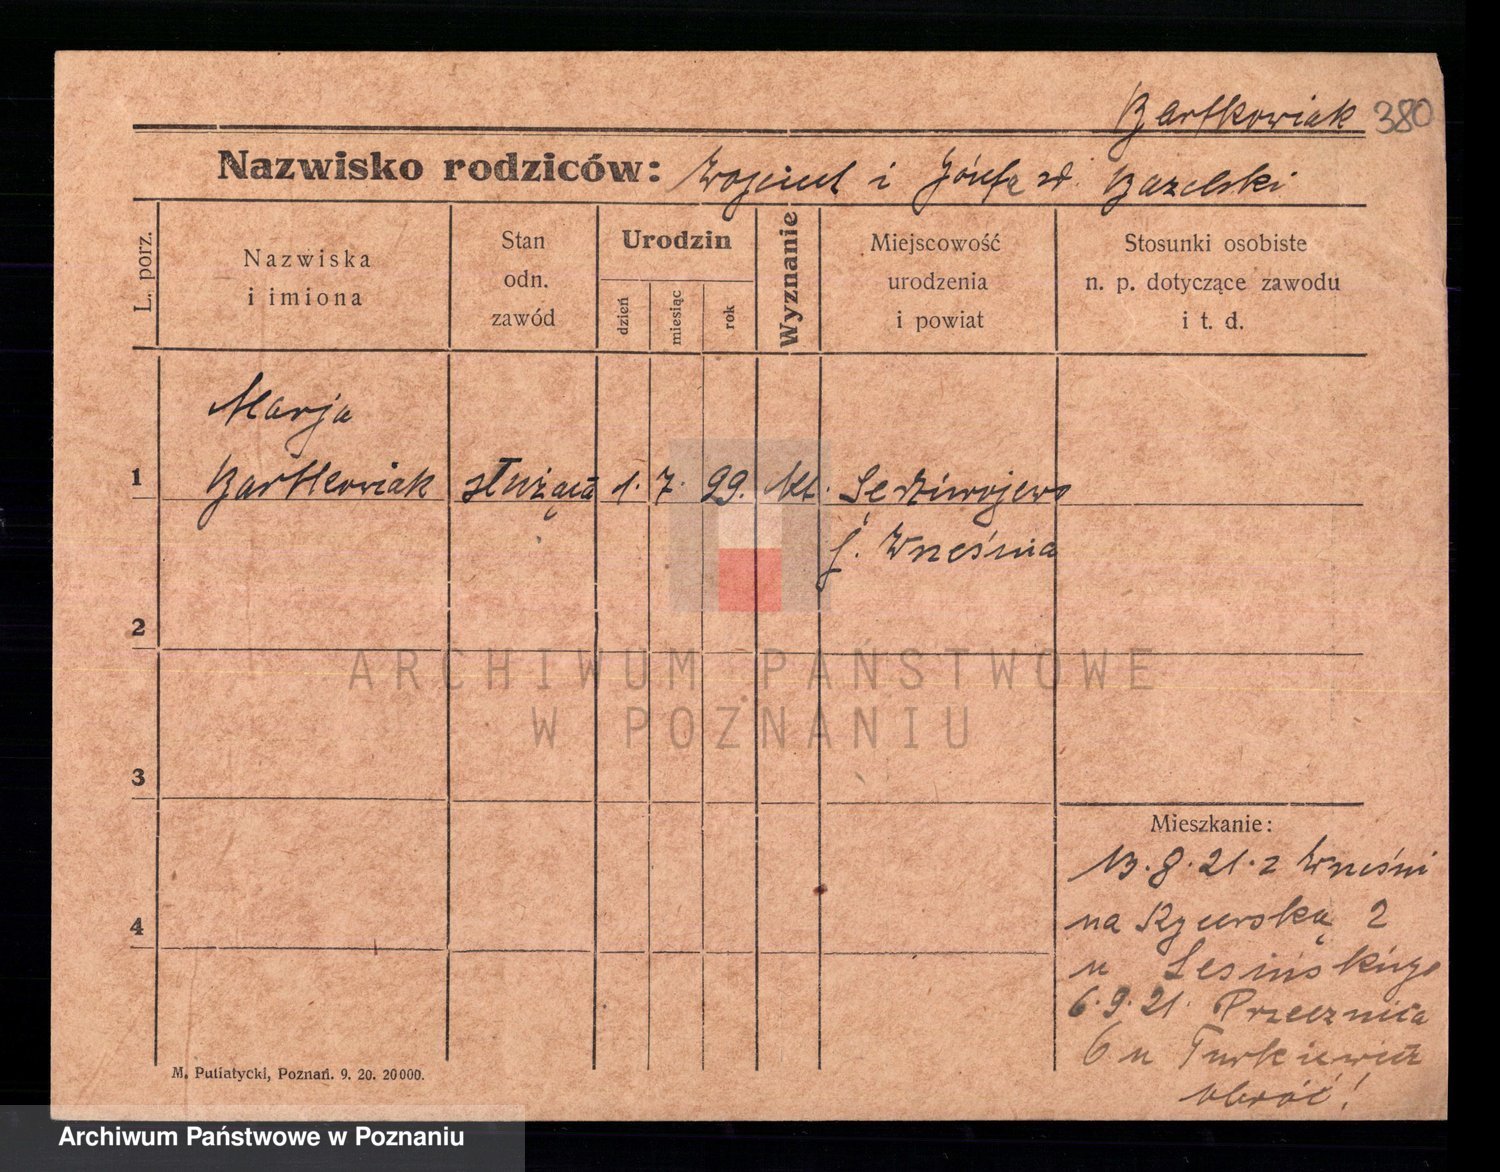 Bartkowiak 380
Nazwisko rodziców: Wojciech i Józefa zd.
L. porz.
Nazwiska
i imiona
Stan
odn.
zawód
Urodzin
dzień
miesiąc
rok
Wyznanie
Miejscowość
urodzenia
i powiat
Stosunki osobiste
n. p. dotyczące zawodu
i t. d.
Marja
1 Bartkowiak służąca 1. 7. 99. kt. Sędziwojewo
Września
2
ARCHIWUM PAŃSTWOWE
W POZNANIU
3
Mieszkanie:
13.8.21. z Wrześni
4
na Rycerską 2
u Lesińskiego
6.9.21. Przecznica
6 u Turkiewicz
obróć!
M. Putiatycki, Poznań. 9. 20. 20000.
Archiwum Państwowe w Poznaniu